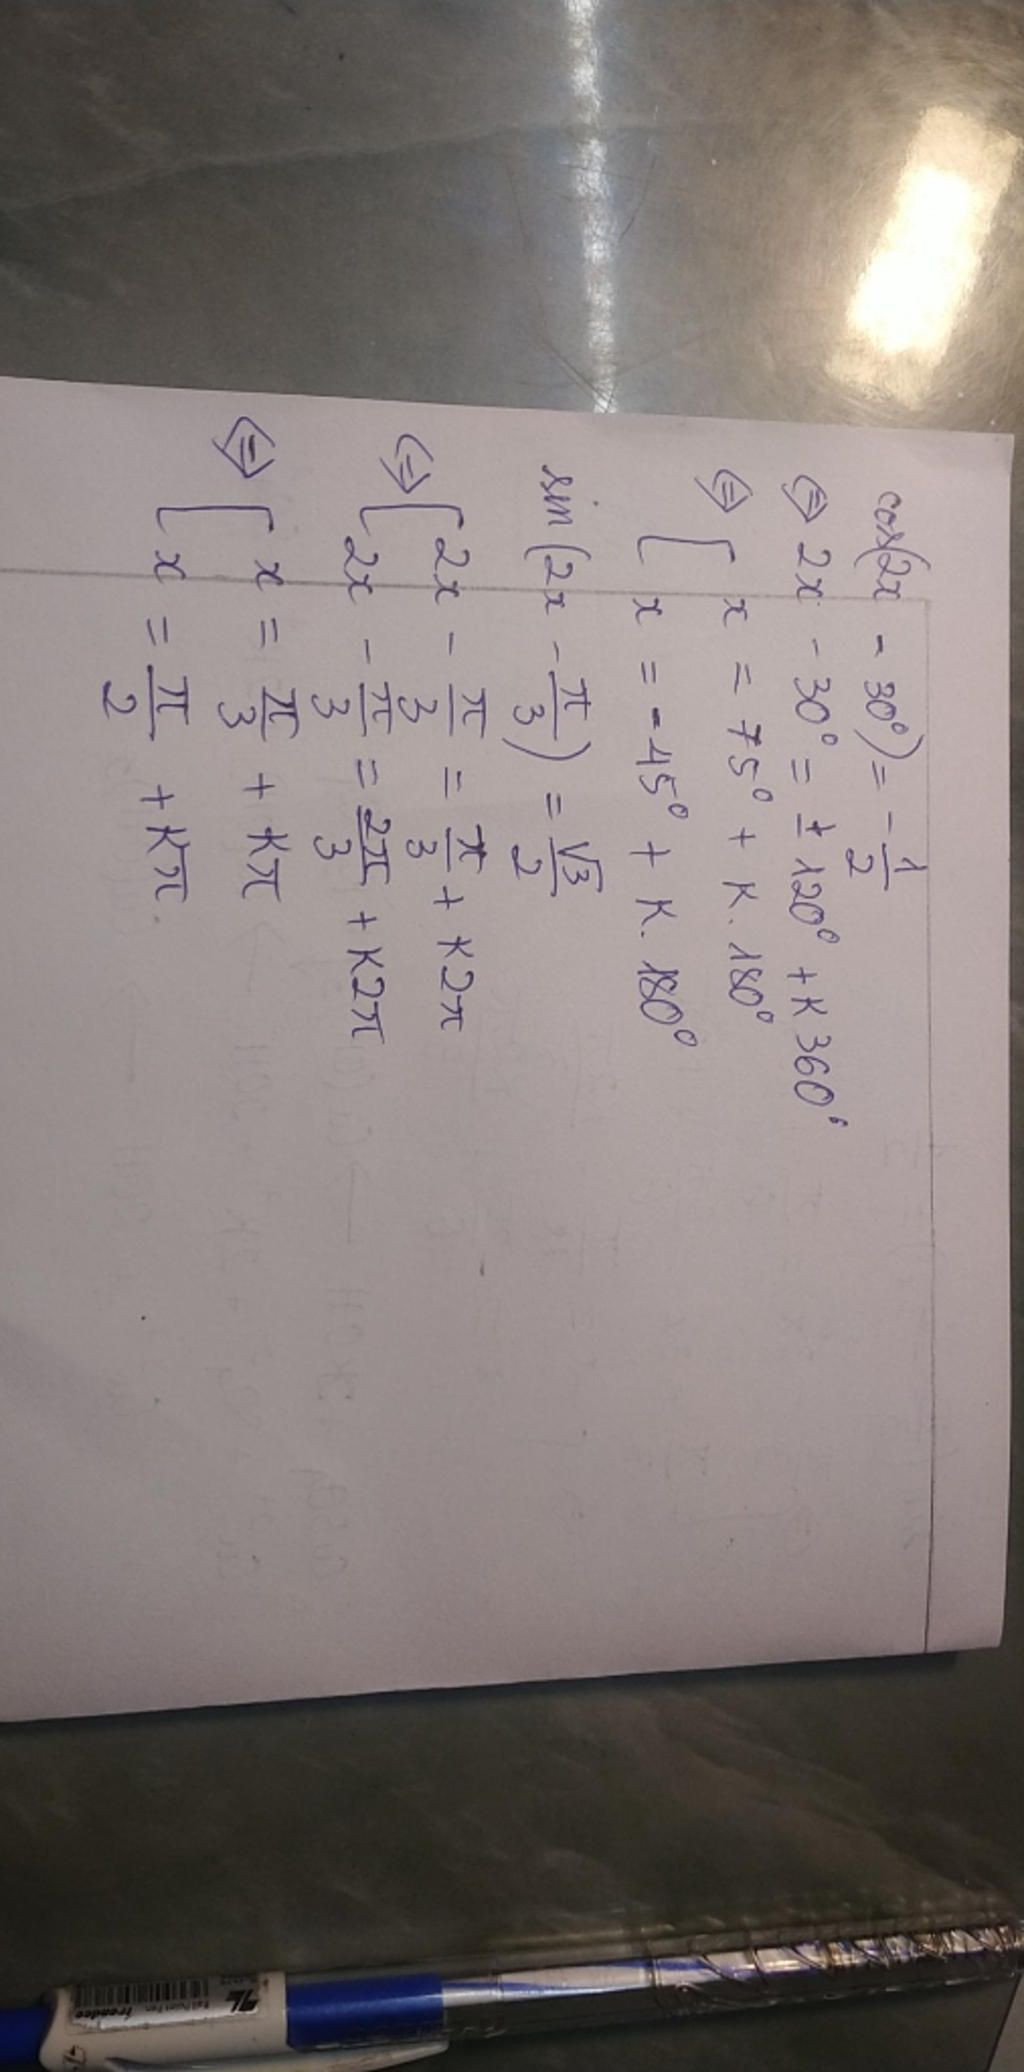 cos(2x - 30°) = -1/2
⇔ 2x - 30° = ± 120° + K 360°
⇔ [ x = 75° + K. 180°
[ x = -45° + K. 180°
sin(2x - π/3) = √3/2
⇔ [ 2x - π/3 = π/3 + K2π
[ 2x - π/3 = 2π/3 + K2π
⇔ [ x = π/3 + Kπ
[ x = π/2 + Kπ.
TL